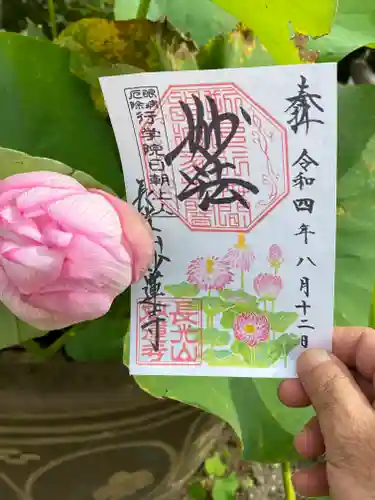 奉拝
令和四年八月十二日
妙法
眼病
厄除
行学院日朝上人
長光山妙蓮寺
長光山